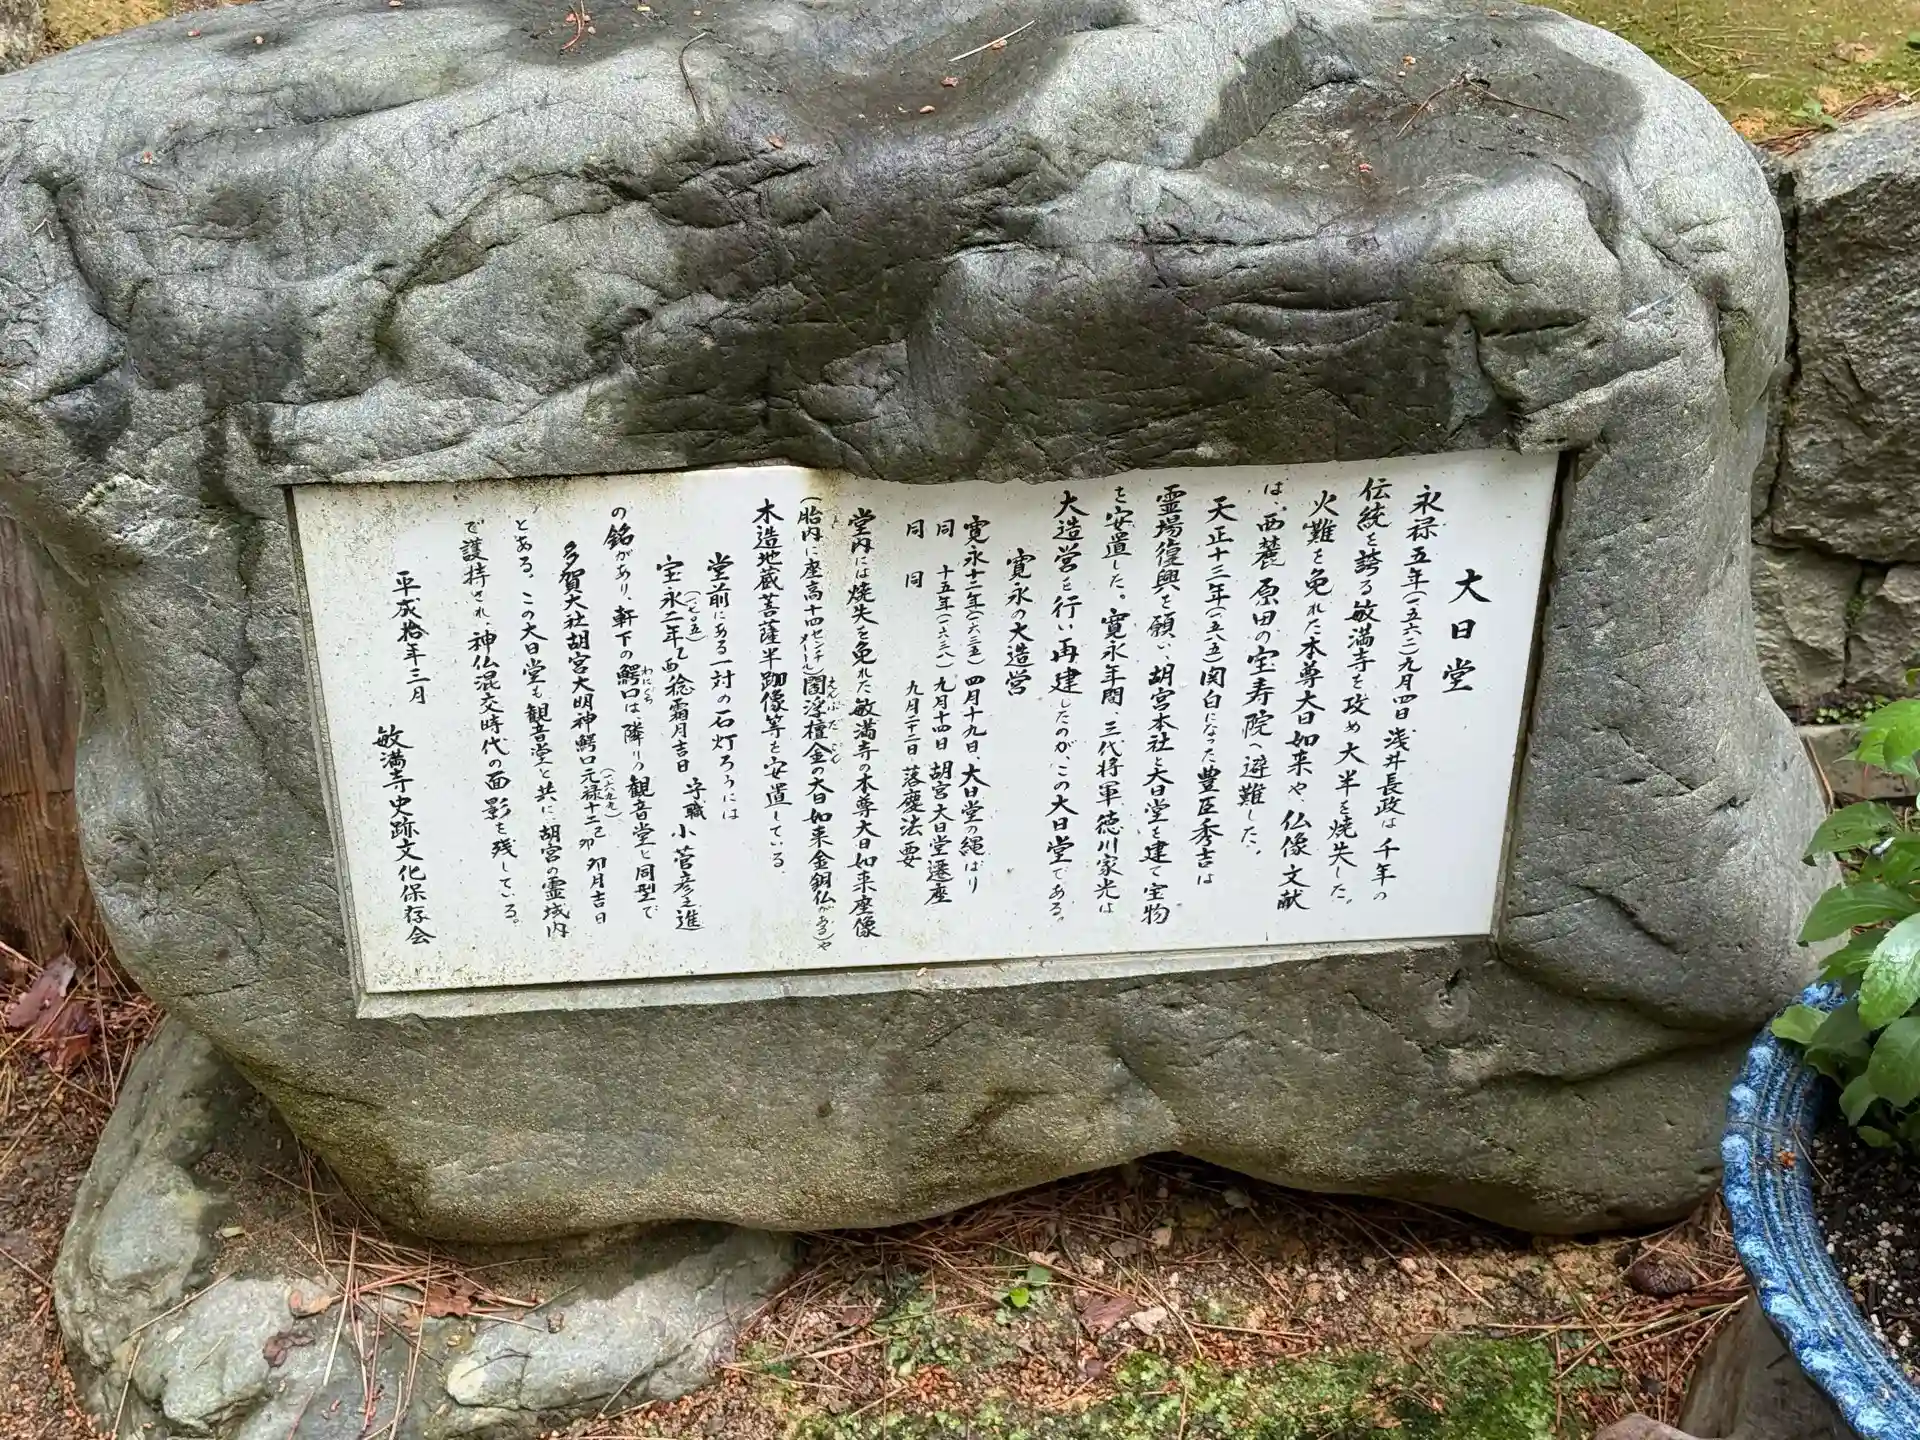 大日堂
永禄五年(一五六二)九月四日浅井長政は千年の
伝統を誇る敏満寺を攻め大半を焼失した。
火難を免れた本尊大日如来や、仏像文献
は、西麓 原田の宝寿院へ避難した。
天正十三年(一五八五)関白になった豊臣秀吉は
霊場復興を願い、胡宮本社と大日堂を建て宝物
を安置した。寛永年間 三代将軍徳川家光は
大造営を行い再建したのが、この大日堂である。
寛永の大造営
寛永十二年(一六三五)四月十九日大日堂の縄ばり
同 十五年(一六三八)九月十四日 胡宮大日堂遷座
同 同 九月二十二日 落慶法要
堂内には焼失を免れた敏満寺の本尊大日如来座像
(胎内に座高十四センチメートル)閻浮檀金の大日如来金銅仏がある)や
えんぶだごん
木造地蔵菩薩半跏像等を安置している
堂前にある一対の石灯ろうには
(一七〇五)
宝永二年乙酉稔霜月吉日 寺職 小菅彦之進
の銘があり、軒下の鰐口は隣りの観音堂と同型で
わにぐち
(一六九九)
多賀大社胡宮大明神鰐口元禄十二己卯 卯月吉日
とある。この大日堂も観音堂と共に胡宮の霊域内
で護持され、神仏混交時代の面影を残している。
平成拾年三月 敏満寺史跡文化保存会